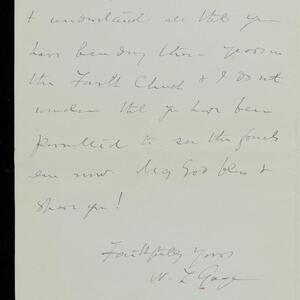 I understand all that you
have been doing these years in
the Fourth Church & I do not
wonder that you have been
permitted to see the fruits
even now. May God bless &
spare you!
Faithfully Yours
W. L. Gage